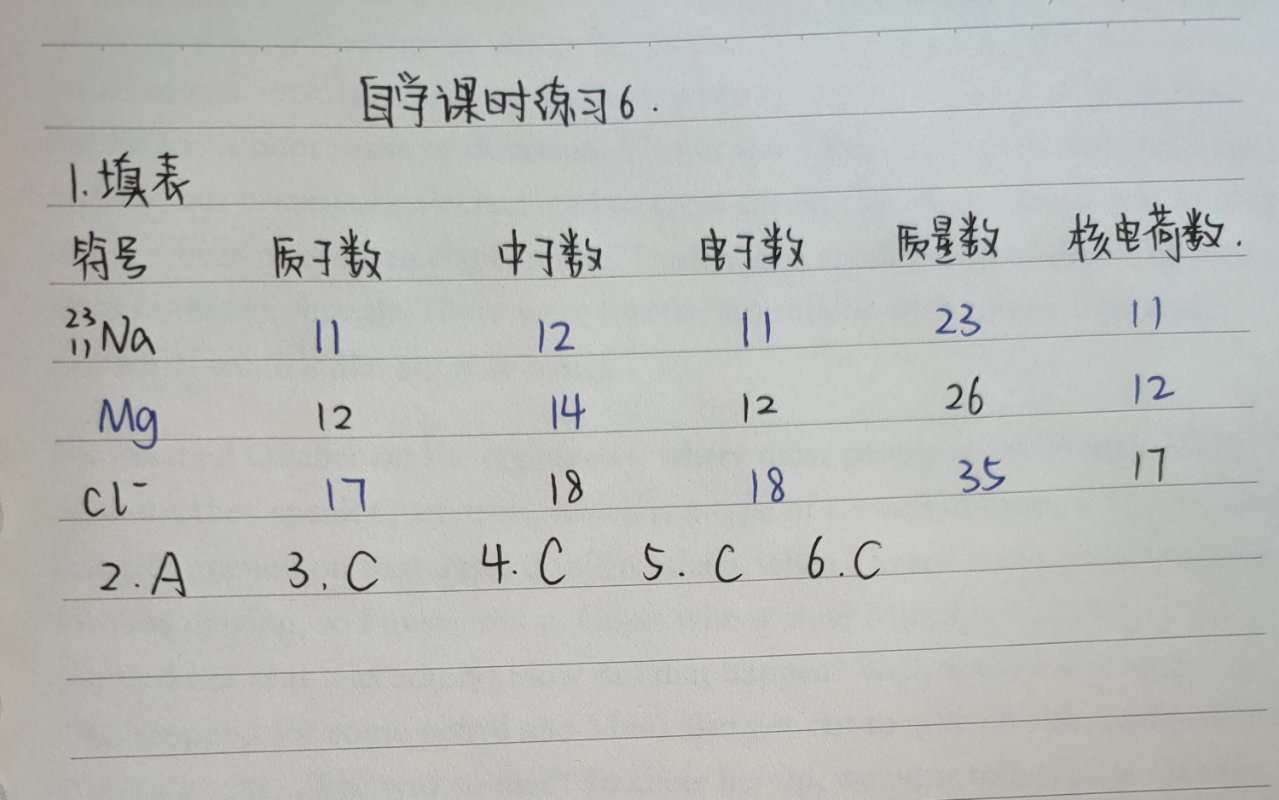 自学课时练习6.
1.填表
符号 质子数 中子数 电子数 质量数 核电荷数.
²³₁₁Na 11 12 11 23 11
Mg 12 14 12 26 12
Cl⁻ 17 18 18 35 17
2.A 3.C 4.C 5.C 6.C